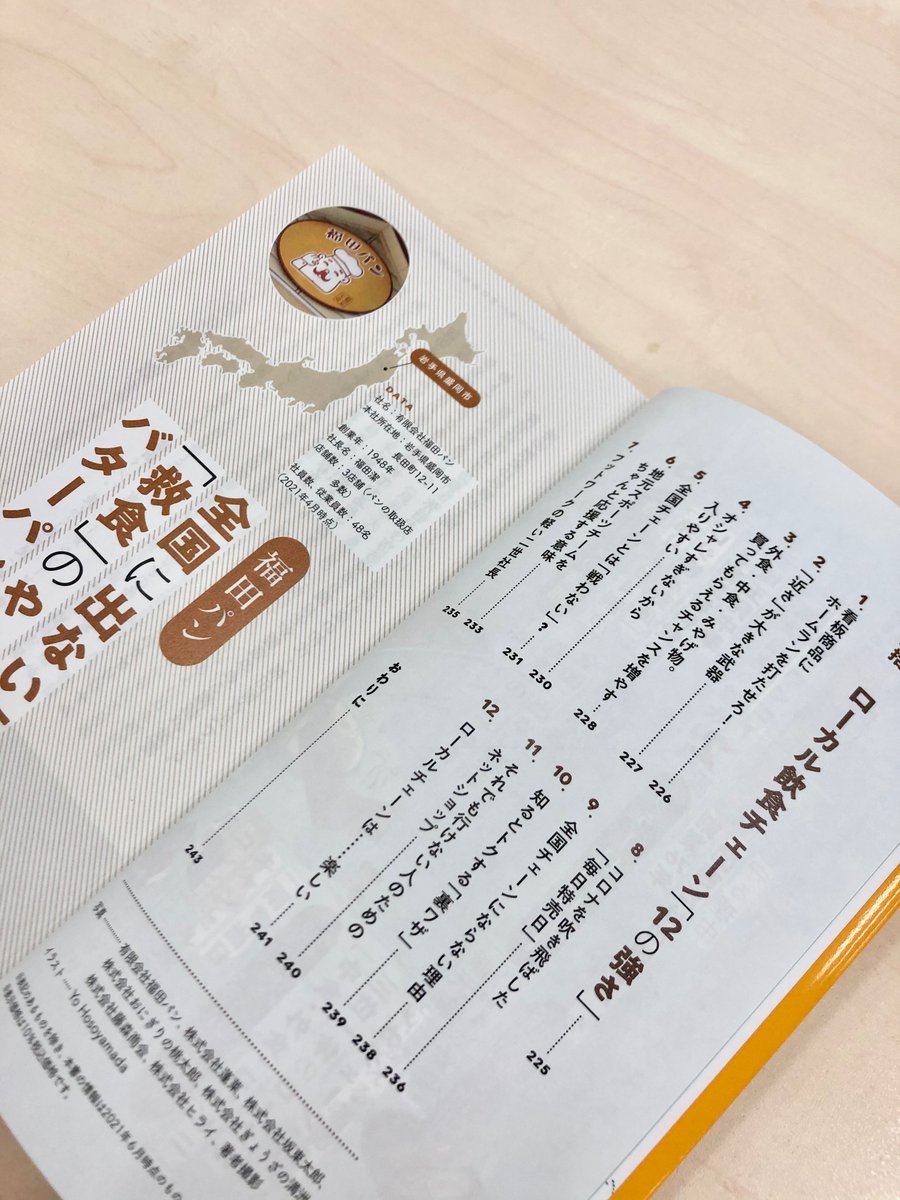 ローカル飲食チェーン「12の強さ」……225
1. 看板商品に
ホームランを打たせろ!……226
2. 「近さ」が大きな武器……227
3. 外食・中食・みやげ物。
買ってもらえるチャンスを増やす……228
4. オシャレすぎないから
入りやすい……230
5. 全国チェーンとは「戦わない」?……231
6. 地元スポーツチームを
ちゃんと応援する意味……233
7. フットワークの軽い二世社長……235
8. コロナを吹き飛ばした
「毎日特売日」……236
9. 全国チェーンにならない理由……238
10. 知るとトクする「裏ワザ」……239
11. それでも行けない人のための
ネットショップ……240
12. ローカルチェーンは……楽しい……241
おわりに……243
写真……有限会社福田パン、株式会社蓬莱、株式会社坂東太郎、
株式会社おにぎりの桃太郎、株式会社ぎょうざの満洲
株式会社藤森商会、株式会社ヒライ、著者撮影
イラスト……Yo Hosoyamada
特記のあるものを除き、本書の情報は2021年6月時点のもの
表示価格は10%税込価格です。
福田パン
岩手県盛岡市
DATA
社名:有限会社福田パン
本社所在地:岩手県盛岡市
長田町12-11
創業年:1948年
社長名:福田潔
店舗数:3店舗(パンの取扱店
多数)
社員数、従業員数:48名
(2021年4月時点)
福田パン
全国に出ない
「救食」の
バターパ